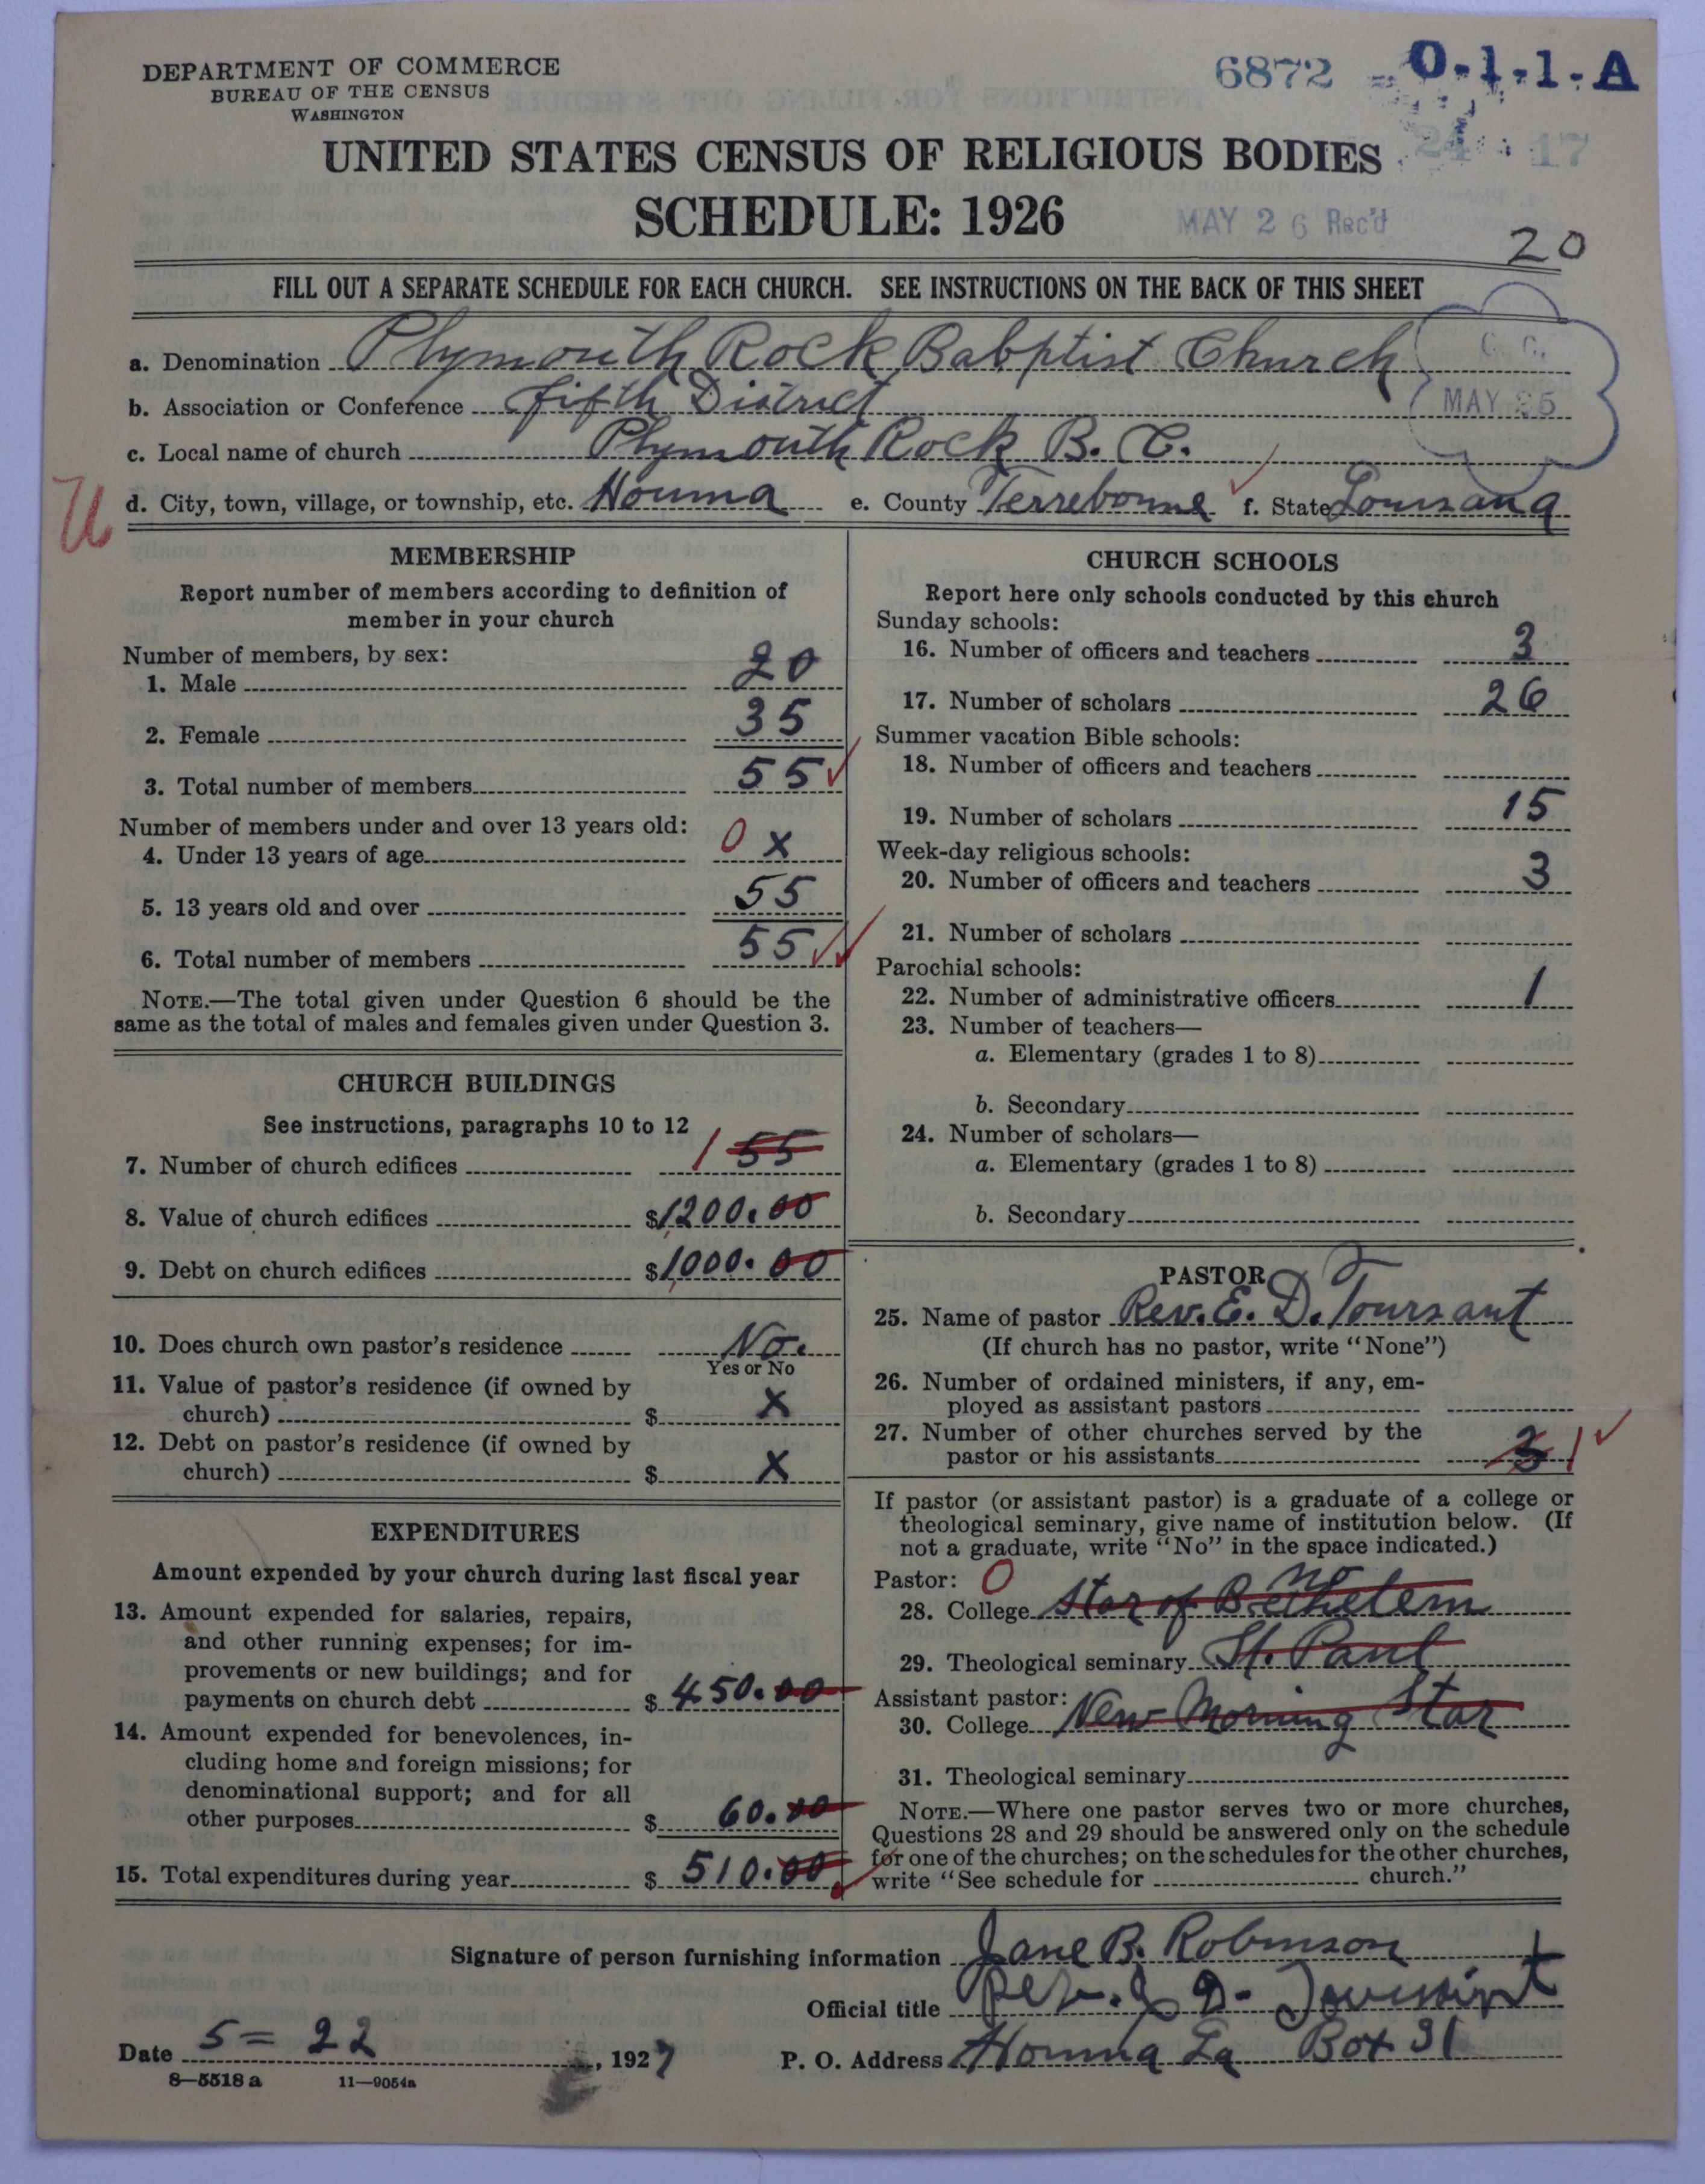 DEPARTMENT OF COMMERCE
BUREAU OF THE CENSUS
WASHINGTON
6872
O-1-1-A
24 17
UNITED STATES CENSUS OF RELIGIOUS BODIES
SCHEDULE: 1926
MAY 26 Rec'd
20
FILL OUT A SEPARATE SCHEDULE FOR EACH CHURCH. SEE INSTRUCTIONS ON THE BACK OF THIS SHEET
a. Denomination Plymouth Rock Babptist Church
C. C.
MAY 25
b. Association or Conference fifth District
c. Local name of church Plymouth Rock B. C.
U
d. City, town, village, or township, etc. Houma e. County Terrebonne f. State Lousana
MEMBERSHIP
Report number of members according to definition of
member in your church
Number of members, by sex:
1. Male 20
2. Female 35
3. Total number of members 55
Number of members under and over 13 years old:
4. Under 13 years of age 0 x
5. 13 years old and over 55
6. Total number of members 55
NOTE.—The total given under Question 6 should be the
same as the total of males and females given under Question 3.
CHURCH BUILDINGS
See instructions, paragraphs 10 to 12
7. Number of church edifices 1 55
8. Value of church edifices $1200.00
9. Debt on church edifices $1000.00
10. Does church own pastor's residence No.
Yes or No
11. Value of pastor's residence (if owned by
church) $ x
12. Debt on pastor's residence (if owned by
church) $ x
EXPENDITURES
Amount expended by your church during last fiscal year
13. Amount expended for salaries, repairs,
and other running expenses; for im-
provements or new buildings; and for
payments on church debt $ 450.00
14. Amount expended for benevolences, in-
cluding home and foreign missions; for
denominational support; and for all
other purposes $ 60.00
15. Total expenditures during year $ 510.00
CHURCH SCHOOLS
Report here only schools conducted by this church
Sunday schools:
16. Number of officers and teachers 3
17. Number of scholars 26
Summer vacation Bible schools:
18. Number of officers and teachers
19. Number of scholars 15
Week-day religious schools:
20. Number of officers and teachers 3
21. Number of scholars
Parochial schools:
22. Number of administrative officers 1
23. Number of teachers—
a. Elementary (grades 1 to 8)
b. Secondary
24. Number of scholars—
a. Elementary (grades 1 to 8)
b. Secondary
PASTOR
25. Name of pastor Rev. E. D. Toursant
(If church has no pastor, write "None")
26. Number of ordained ministers, if any, em-
ployed as assistant pastors
27. Number of other churches served by the
pastor or his assistants 3 1
If pastor (or assistant pastor) is a graduate of a college or
theological seminary, give name of institution below. (If
not a graduate, write "No" in the space indicated.)
Pastor: 0 no
28. College Star of Bethelem
29. Theological seminary St. Paul
Assistant pastor:
30. College New Morning Star
31. Theological seminary
NOTE.—Where one pastor serves two or more churches,
Questions 28 and 29 should be answered only on the schedule
for one of the churches; on the schedules for the other churches,
write "See schedule for church."
Signature of person furnishing information Jane B. Robinson
Official title Rev. D.
Date 5= 22, 1927
P. O. Address Houma La Box 31
8—5518 a 11—9054a